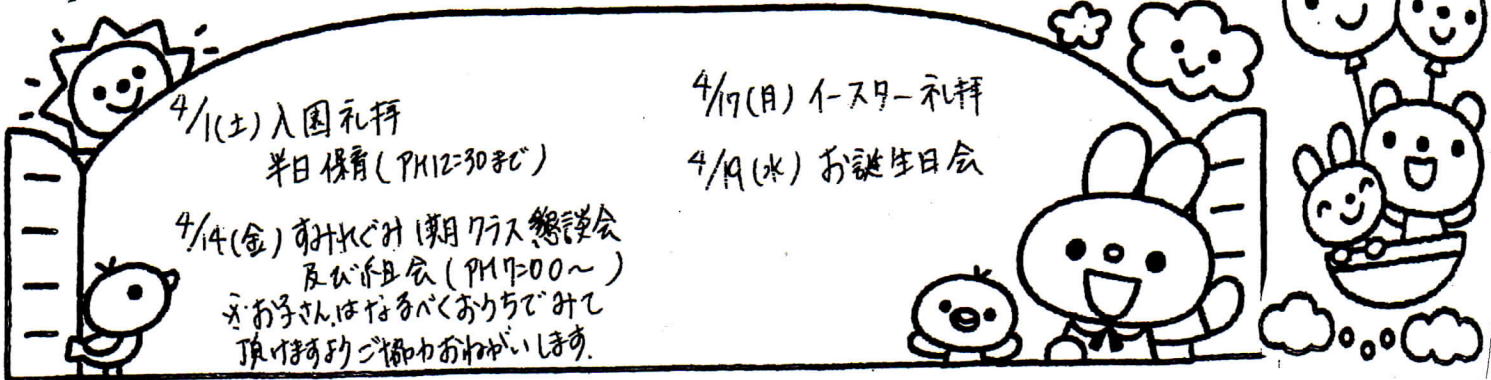 4/1(土)入園礼拝
半日保育(PM12:30まで)
4/14(金) すみれぐみ 1期クラス懇談会
及び組会(PM7:00〜)
※お子さんはなるべくおうちでみて
頂けますようご協力おねがいします。
4/17(月) イースター礼拝
4/19(水) お誕生日会